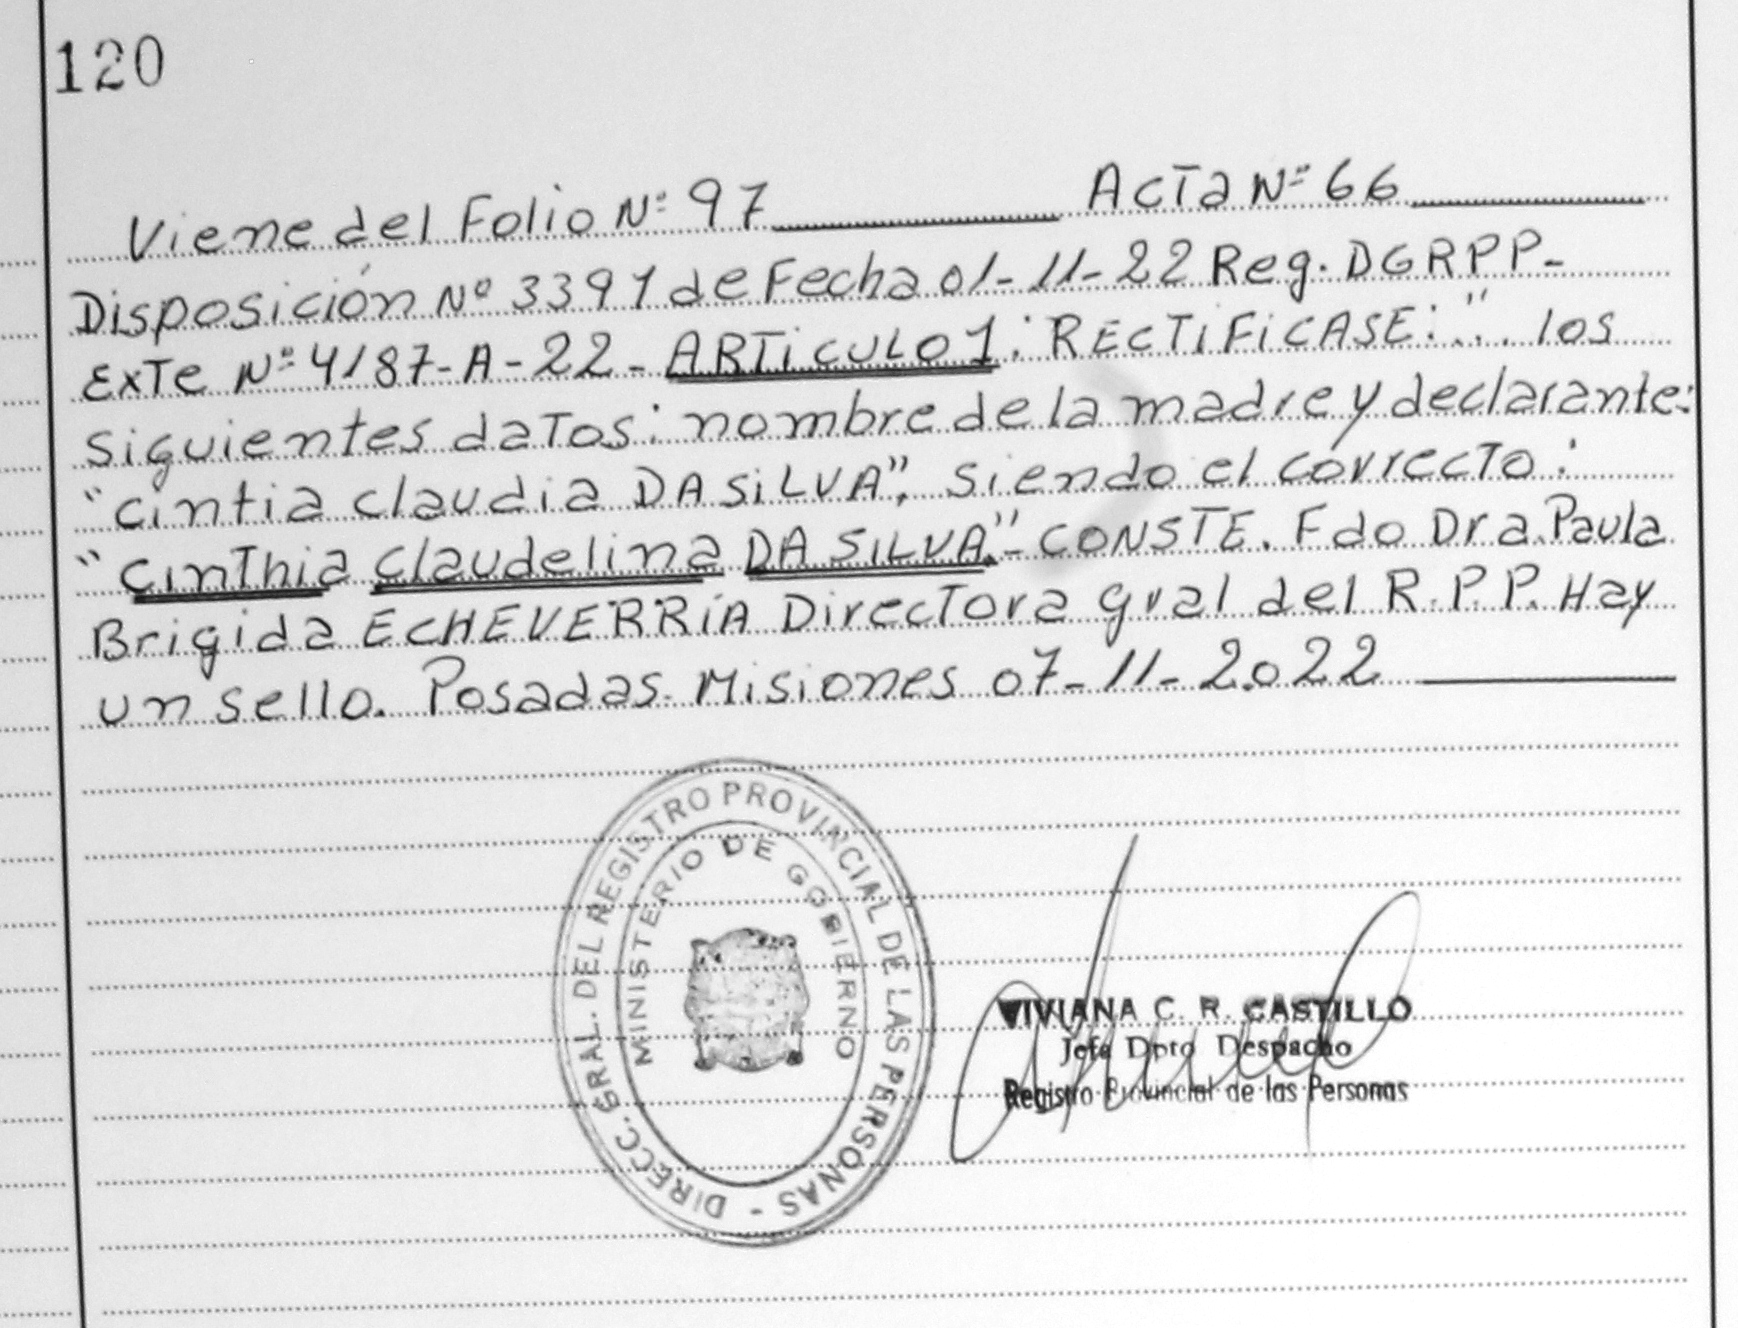 120
Viene del Folio Nº 97 Acta Nº 66
Disposición Nº 3391 de Fecha 01-11-22 Reg. DGRPP-
EXTE Nº 4187-A-22- ARTiCULO 1: RECTIFICASE: "... los
siguientes datos: nombre de la madre y declarante:
"Cintia Claudia DA SiLVA", siendo el correcto:
"Cinthia Claudelina DA SILVA."- CONSTE. Fdo Dra. Paula
Brigida ECHEVERRiA Directora gral del R.P.P. Hay
un sello. Posadas. Misiones 07-11-2.022
DIRECC. GRAL. DEL REGISTRO PROVINCIAL DE LAS PERSONAS -
MINISTERIO DE GOBIERNO
VIVIANA C. R. CASTILLO
Jefa Dpto Despacho
Registro Provincial de las Personas